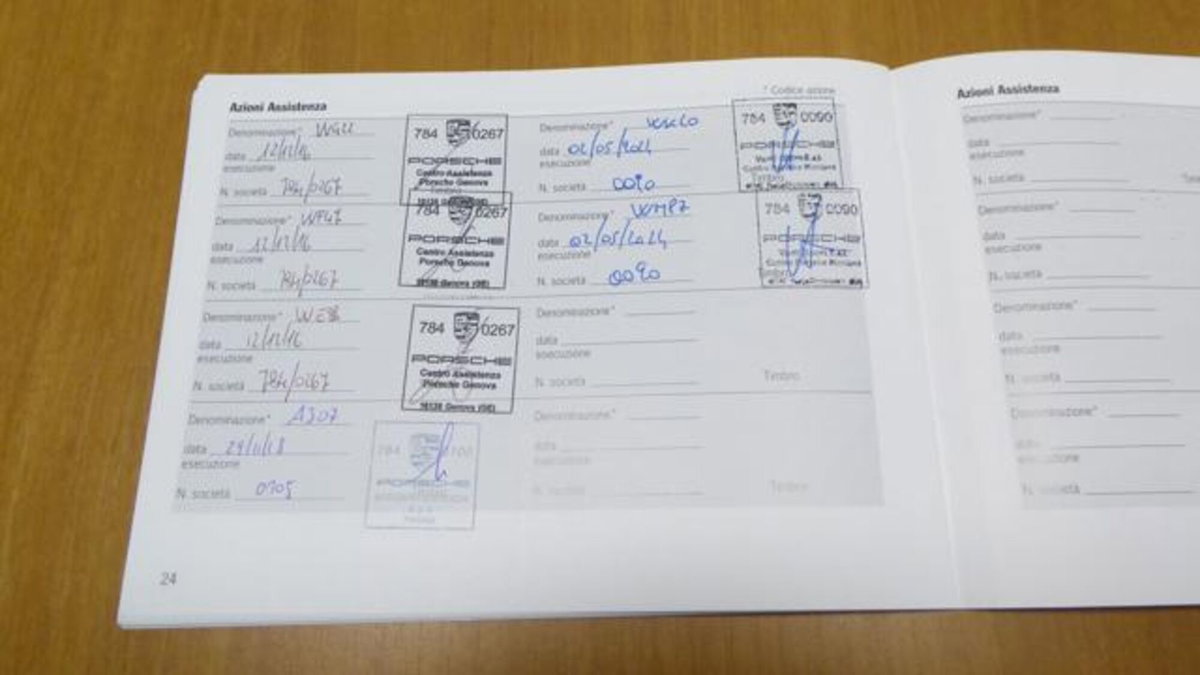 Azioni Assistenza
* Codice azione
Denominazione*
data 12/12/16
esecuzione
N. società 784/0267
784 0267
PORSCHE
Centro Assistenza
Porsche Genova
Denominazione* WF47
data 12/12/16
esecuzione
N. società 784/0267
784 0267
PORSCHE
Centro Assistenza
Porsche Genova
16138 Genova (GE)
Denominazione*
data 12/12/16
esecuzione
N. società 784/0267
784 0267
PORSCHE
Centro Assistenza
Porsche Genova
16138 Genova (GE)
Denominazione* AJ07
data
esecuzione
N. società
784
PORSCHE
Denominazione*
data 02/05/2024
esecuzione
N. società 0090
784 0090
PORSCHE
Timbro
Denominazione*
data 02/05/2024
esecuzione
N. società 0090
784 0090
PORSCHE
Timbro
Denominazione*
data
esecuzione
N. società
Timbro
Denominazione*
data
esecuzione
N. società
Timbro
24
Azioni Assistenza
Denominazione*
data
esecuzione
N. società
Denominazione*
data
esecuzione
N. società
Denominazione*
data
esecuzione
N. società
Denominazione*
data
esecuzione
N. società